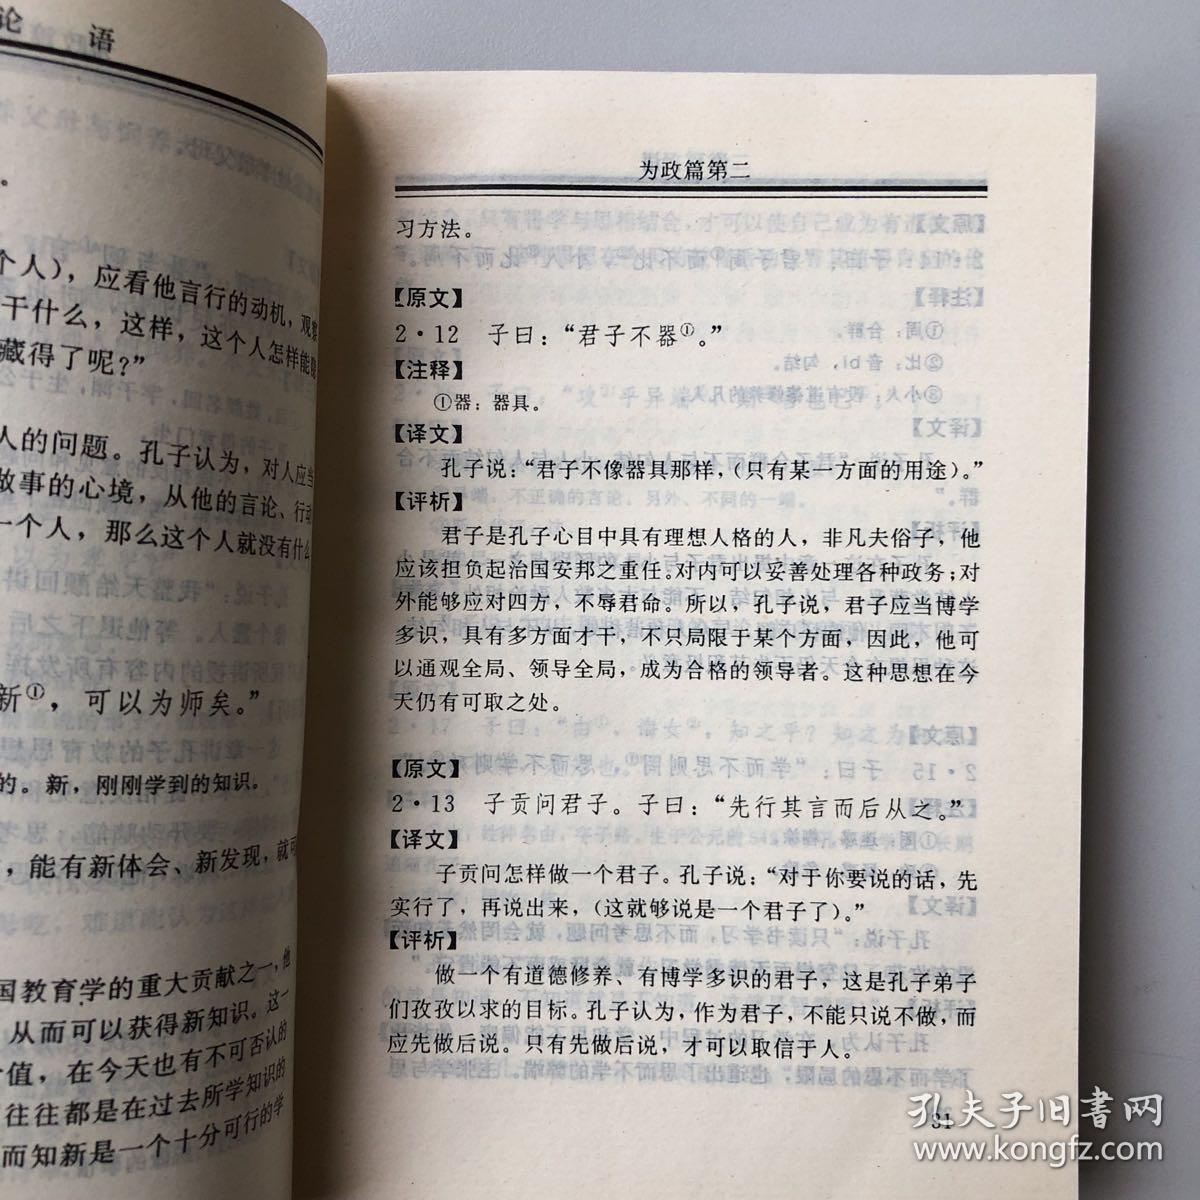 论 语
。
个人），应看他言行的动机，观察
干什么，这样，这个人怎样能隐
藏得了呢？”
人的问题。孔子认为，对人应当
做事的心境，从他的言论、行动
一个人，那么这个人就没有什么
新①，可以为师矣。”
的。新，刚刚学到的知识。
，能有新体会、新发现，就可
国教育学的重大贡献之一，他
从而可以获得新知识。这一
价值，在今天也有不可否认的
往往都是在过去所学知识的
而知新是一个十分可行的学
为政篇第二
习方法。
【原文】
2·12 子曰：“君子不器①。”
【注释】
①器：器具。
【译文】
孔子说：“君子不像器具那样，（只有某一方面的用途）。”
【评析】
君子是孔子心目中具有理想人格的人，非凡夫俗子，他
应该担负起治国安邦之重任。对内可以妥善处理各种政务；对
外能够应对四方，不辱君命。所以，孔子说，君子应当博学
多识，具有多方面才干，不只局限于某个方面，因此，他可
以通观全局、领导全局，成为合格的领导者。这种思想在今
天仍有可取之处。
【原文】
2·13 子贡问君子。子曰：“先行其言而后从之。”
【译文】
子贡问怎样做一个君子。孔子说：“对于你要说的话，先
实行了，再说出来，（这就够说是一个君子了）。”
【评析】
做一个有道德修养、有博学多识的君子，这是孔子弟子
们孜孜以求的目标。孔子认为，作为君子，不能只说不做，而
应先做后说。只有先做后说，才可以取信于人。
31
孔夫子旧书网
www.kongfz.com